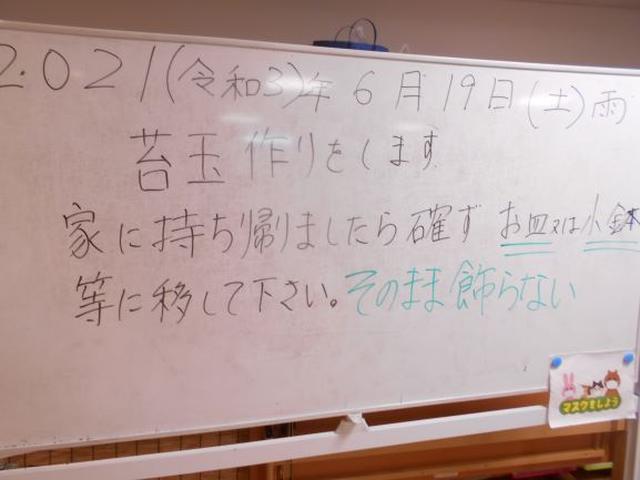 2021(令和3)年 6月19日(土)雨
苔玉作りをします
家に持ち帰りましたら確ず お皿又は小鉢
等に移して下さい。そのまま飾らない
マスクをしよう